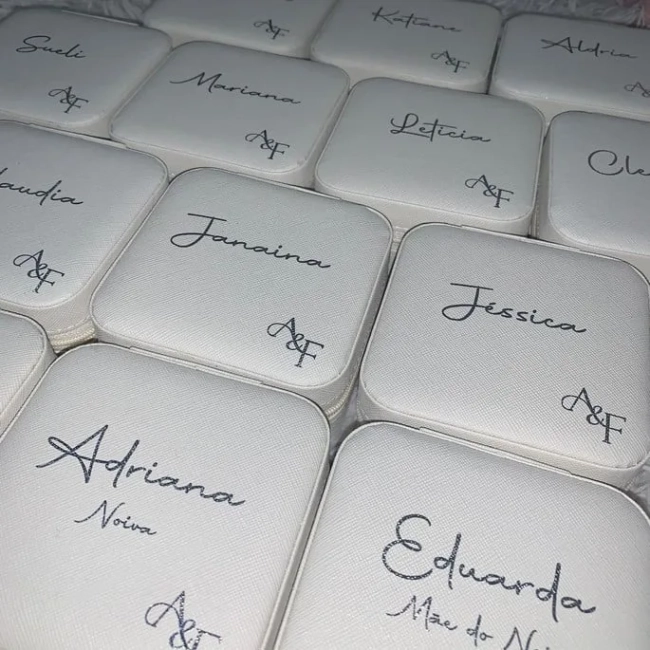 A&F
Katiane
A&F
Aldria
Sueli
A&F
Mariana
A&F
Letícia
A&F
audia
A&F
Janaina
A&F
Jéssica
A&F
Adriana
Noiva
A&F
Eduarda
Mãe do